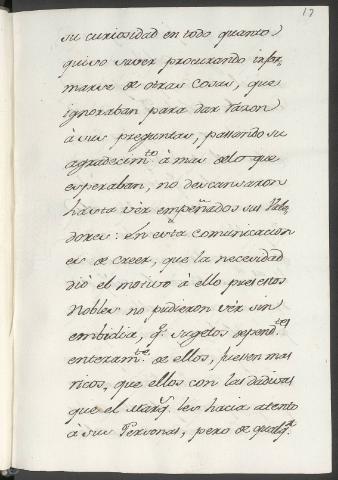 17
su curiosidad en todo quanto
quiso saver procurando infor,
marse de otras cosas, que
ignoraban para dar razon
à sus preguntas, passando su
agradecim.to à mas delo que
esperaban, no descansaron
hasta vèr empeñados sus Vale,
dores: En esta comunicacion
es de creer, que la necesidad
diò el motivo à ello pues estos
Nobles no pudieron vèr sin
embidia, q.e sugetos depend.tes
enteram.te de ellos, fuesen mas
ricos, que ellos con las dadivas
que el Marq.s les hacia atento
à sus Personas, pero de qualq.r